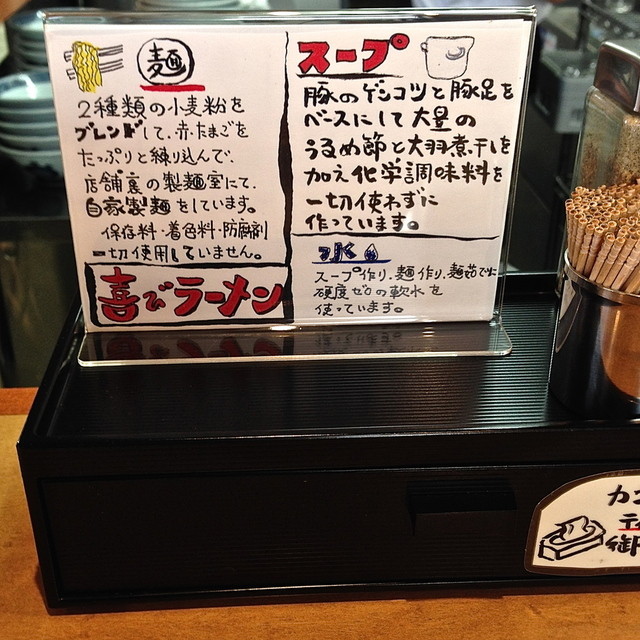 麺
2種類の小麦粉を
ブレンドして、赤たまごを
たっぷりと練り込んで、
店舗裏の製麺室にて、
自家製麺をしています。
保存料・着色料・防腐剤
一切使用していません。
喜びラーメン
スープ
豚のゲンコツと豚足を
ベースにして大量の
うるめ節と大羽煮干しを
加え化学調味料を
一切使わずに
作っています。
水
スープ作り、麺作り、麺茹でに
硬度ゼロの軟水を
使っています。